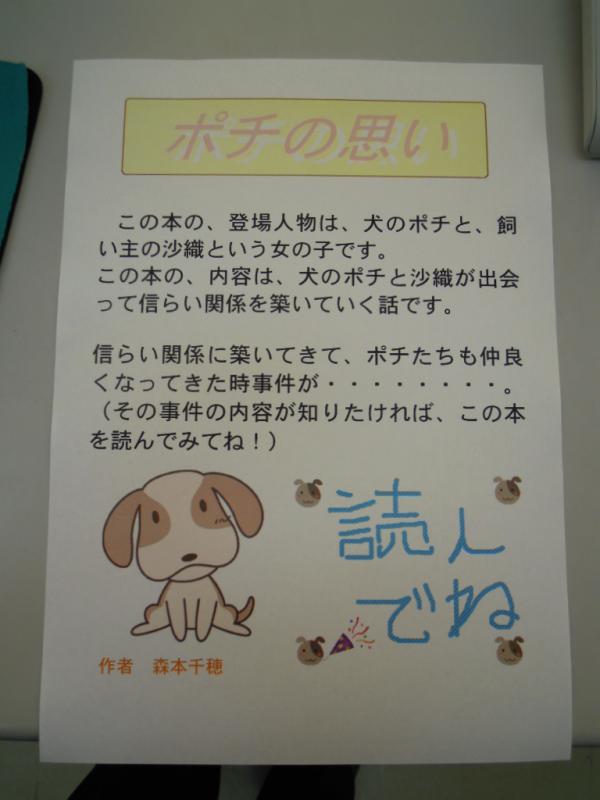 ポチの思い
この本の、登場人物は、犬のポチと、飼
い主の沙織という女の子です。
この本の、内容は、犬のポチと沙織が出会
って信らい関係を築いていく話です。
信らい関係に築いてきて、ポチたちも仲良
くなってきた時事件が・・・・・・・・。
（その事件の内容が知りたければ、この本
を読んでみてね！）
読ん
でね
作者　森本千穂